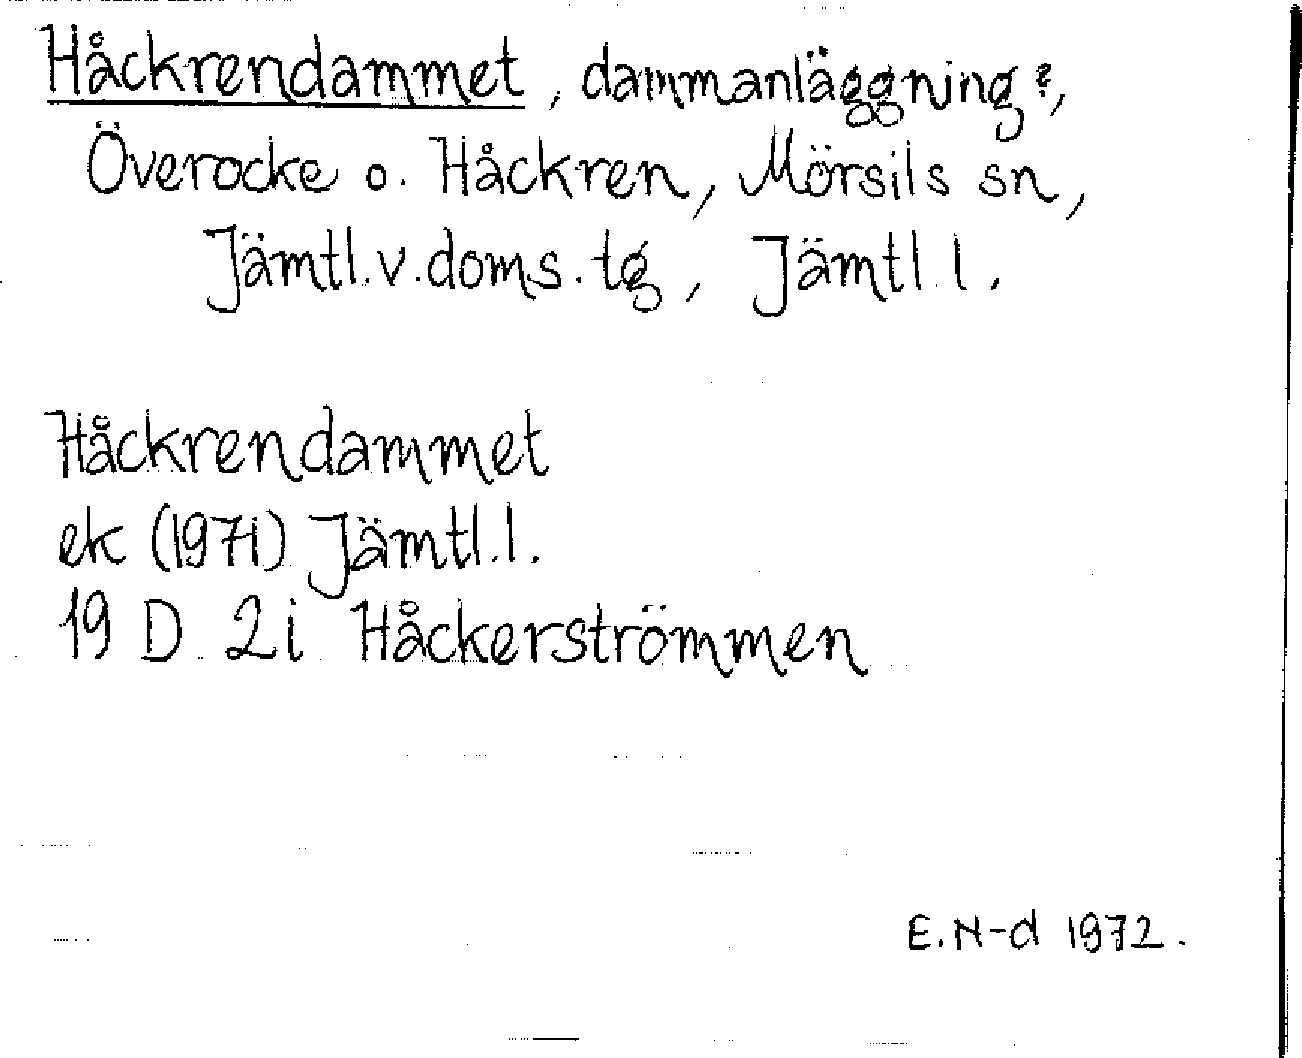 Håckrendammet, dammanläggning?,
Överocke o. Håckren, Mörsils sn,
Jämtl.v.doms.tg, Jämtl.l.
Håckrendammet
ek (1971) Jämtl.l.
19 D 2i Håckerströmmen
E.N-d 1972.